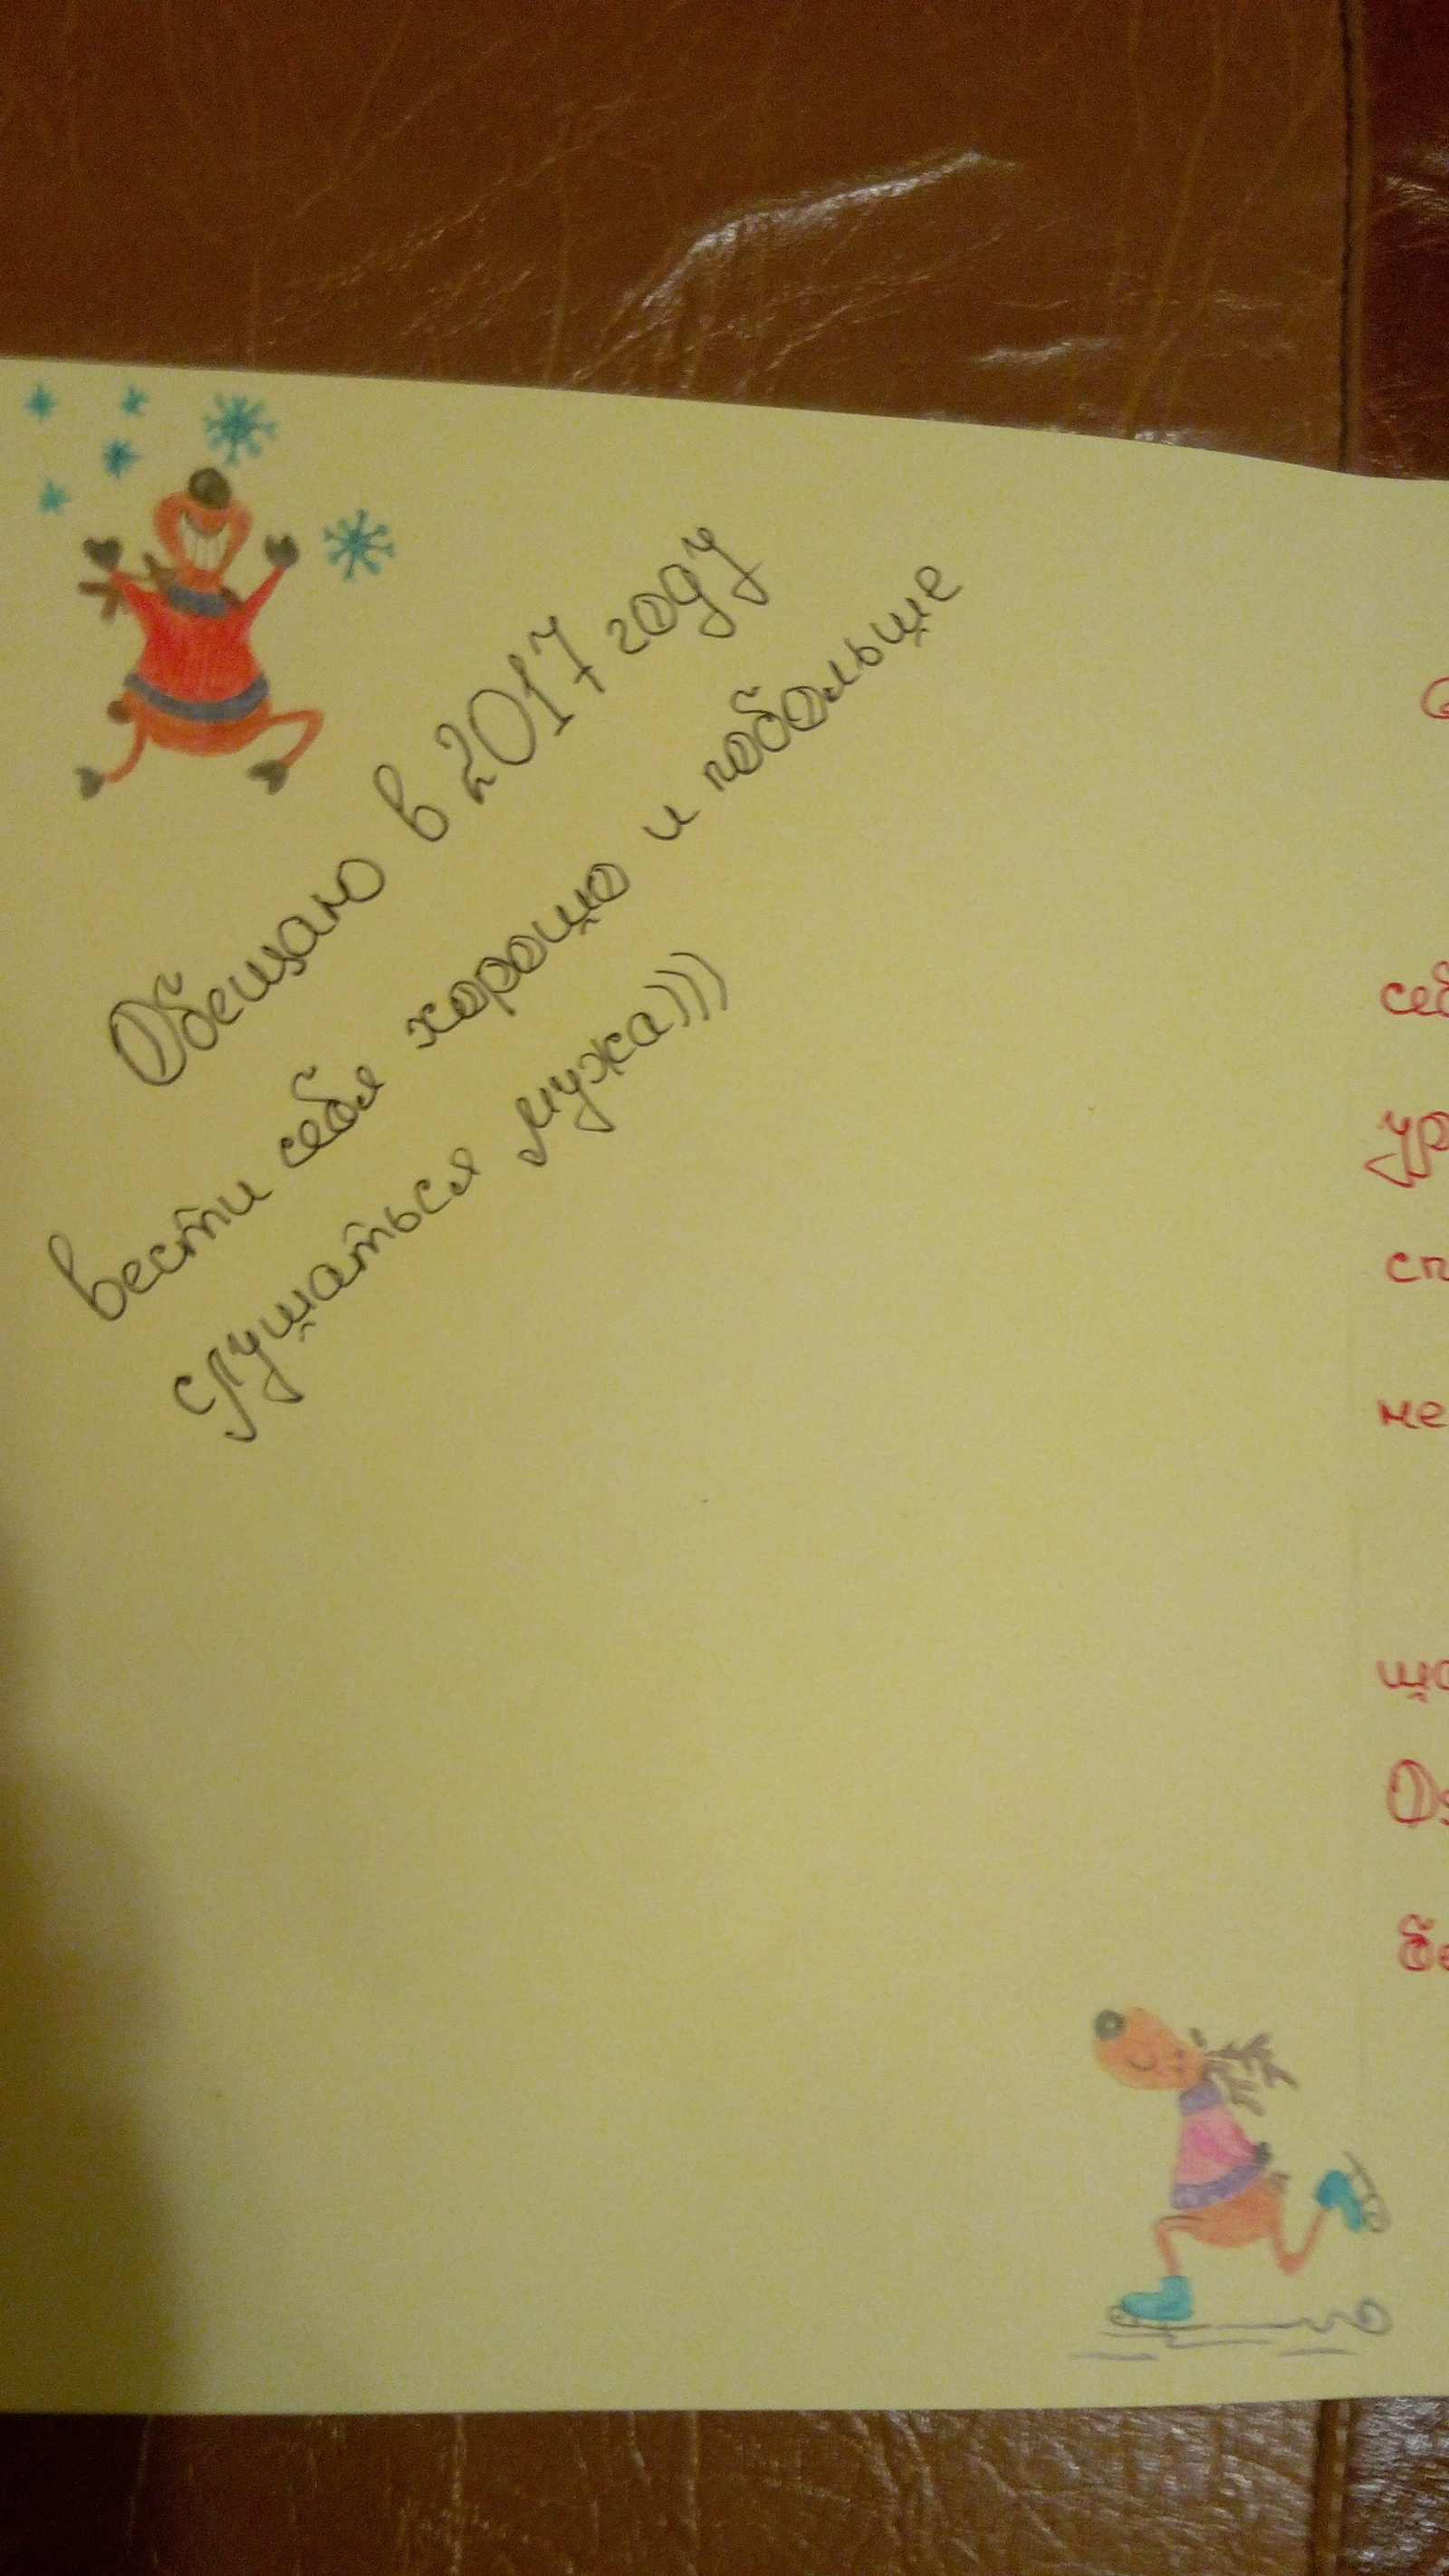 Обещаю в 2017 году
вести себя хорошо и побольше
слушаться мужа)))
себ
ур
сп
не
ща
бе